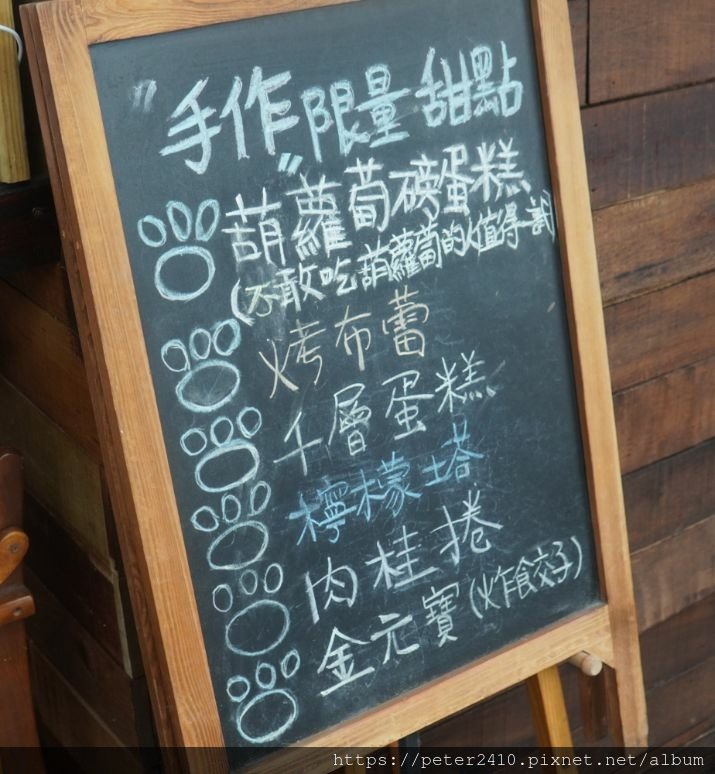 "手作"限量甜點
葫蘿蔔磅蛋糕
(不敢吃葫蘿蔔的值得一試)
烤布蕾
千層蛋糕
檸檬塔
肉桂捲
金元寶(炸餃子)
https://peter2410.pixnet.net/album